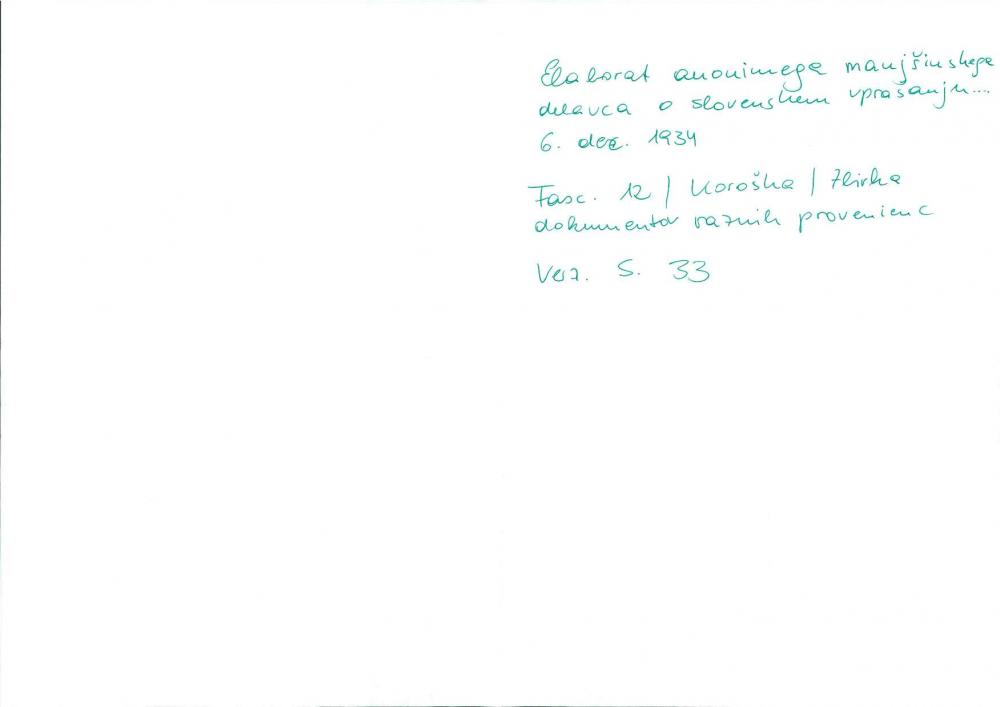 Elaborat anonimega manjšinskega
delavca o slovenskem vprašanju....
6. dez. 1934
Fasc. 12 / Koroška / Zbirka
dokumentov raznih provenienc
Verz. S. 33